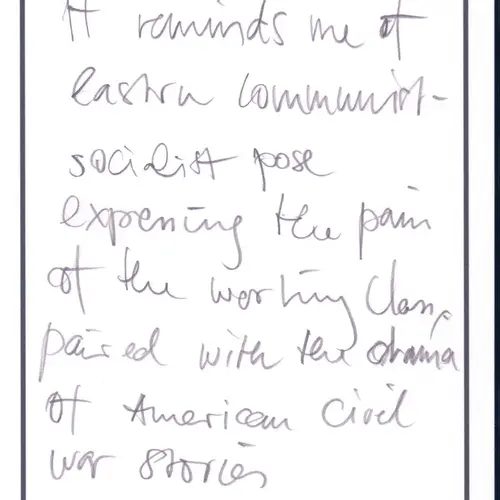 It reminds me of
eastern communist-
socialist pose
expressing the pain
of the working class,
paired with the drama
of American civil
war stories